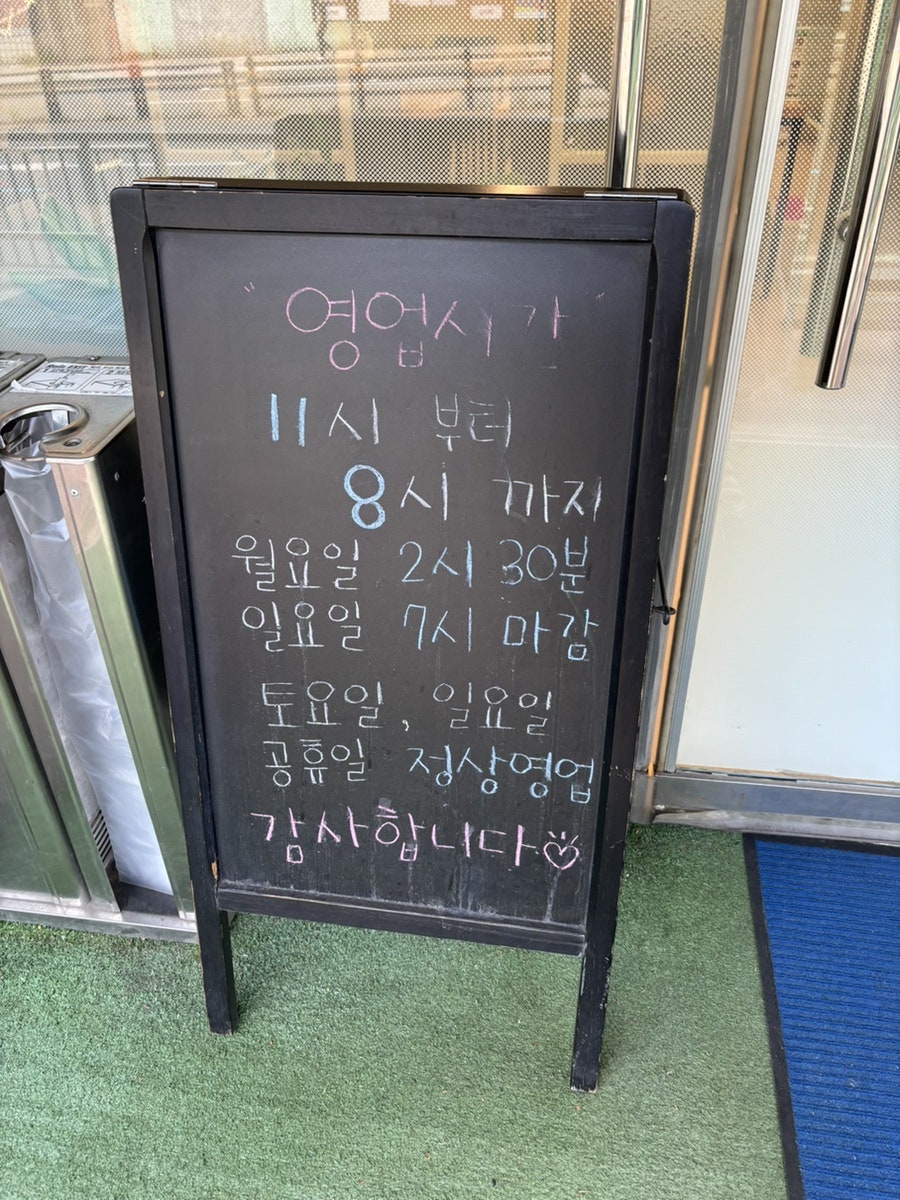 " 영업시간 "
11시 부터
8시 까지
월요일 2시 30분
일요일 7시 마감
토요일, 일요일
공휴일 정상영업
감사합니다